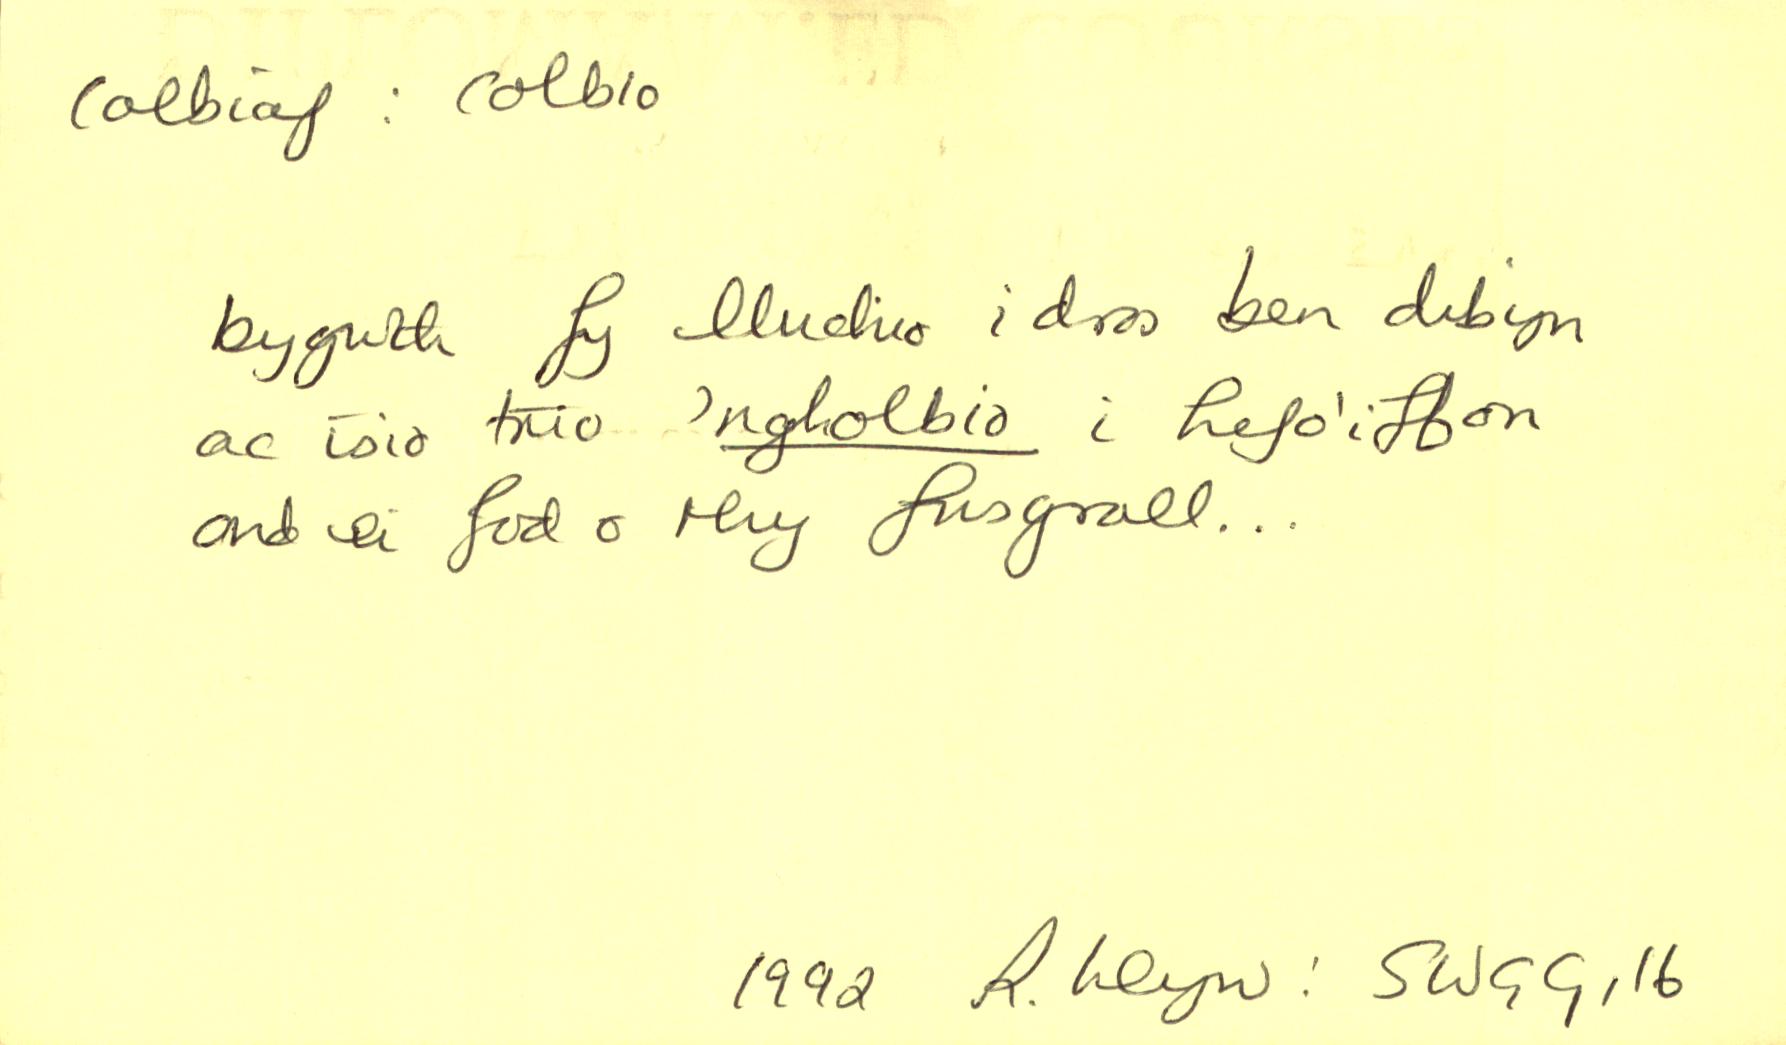 colbiaf : colbio
bygwth fy lluchio i dros ben dibyn
ac isio trio 'ngholbio i hefo'i ffon
ond ei fod o rhy fusgrall...
1992 R. Llwyn: SWGG, 16